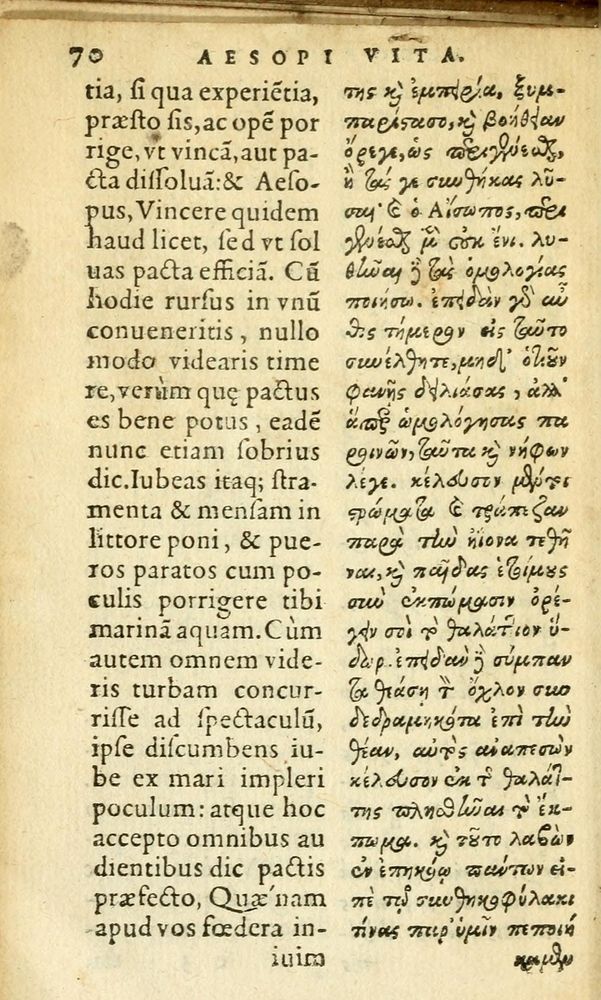 70 AESOPI VITA.
tia, si qua experiẽtia,
præsto sis, ac opẽ por
rige, vt vincã, aut pa-
cta dissoluã: & Aeso-
pus, Vincere quidem
haud licet, sed vt sol
uas pacta efficiã. Cũ
hodie rursus in vnũ
conueneritis, nullo
modo videaris time
re, verùm quę pactus
es bene potus, eadẽ
nunc etiam sobrius
dic. Iubeas itaq; stra-
menta & mensam in
littore poni, & pue-
ros paratos cum po-
culis porrigere tibi
marinã aquam. Cùm
autem omnem vide-
ris turbam concur-
risse ad spectaculũ,
ipse discumbens iu-
be ex mari impleri
poculum: atque hoc
accepto omnibus au
dientibus dic pactis
præfecto, Quæ'nam
apud vos fœdera in-
iuim
της καὶ ἐμπειρία, ξυμ-
παρίστασο, καὶ βοήθειαν
ὄρεγε, ὡς περιγενέσθαι,
ἢ τάς γε συνθήκας λῦ-
σαι· καὶ ὁ Αἴσωπος, περι
γενέσθαι μὲν οὐκ ἔνι. λυ-
θῆναι δὲ τὰς ὁμολογίας
ποιήσω. ἐπειδὰν γὰρ αὖ
θις τήμερον εἰς ταῦτο
συνέλθητε, μηδ' ὁτιοῦν
φανῇς δειλιάσας, ἀλλ'
ἅπερ ὡμολόγησας πα
ροινῶν, ταῦτα καὶ νήφων
λέγε. κέλευσον μέντοι
στρώματα καὶ τράπεζαν
παρὰ τὴν ἠϊόνα τεθῆ
ναι, καὶ παῖδας ἑτοίμους
σὺν ἐκπώμασιν ὀρέ-
γειν σοι τὸ θαλάττιον ὕ-
δωρ. ἐπειδὰν δὲ σύμπαν
τα θεάσῃ τὸν ὄχλον συν
δεδραμηκότα ἐπὶ τὴν
θέαν, αὐτὸς ἀναπεσὼν
κέλευσον ἐκ τῆς θαλάτ-
της πλησθῆναι τὸ ἔκ-
πωμα. καὶ τοῦτο λαβὼν
ἐν ἐπηκόῳ πάντων εἰ-
πὲ τῷ συνθηκοφύλακι
τίνας παρ' ὑμῖν πεποίη
καμεν